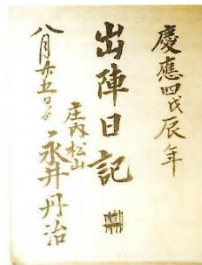 慶應四戊辰年
出陣日記
八月廿五日ゟ
庄内松山
永井丹治